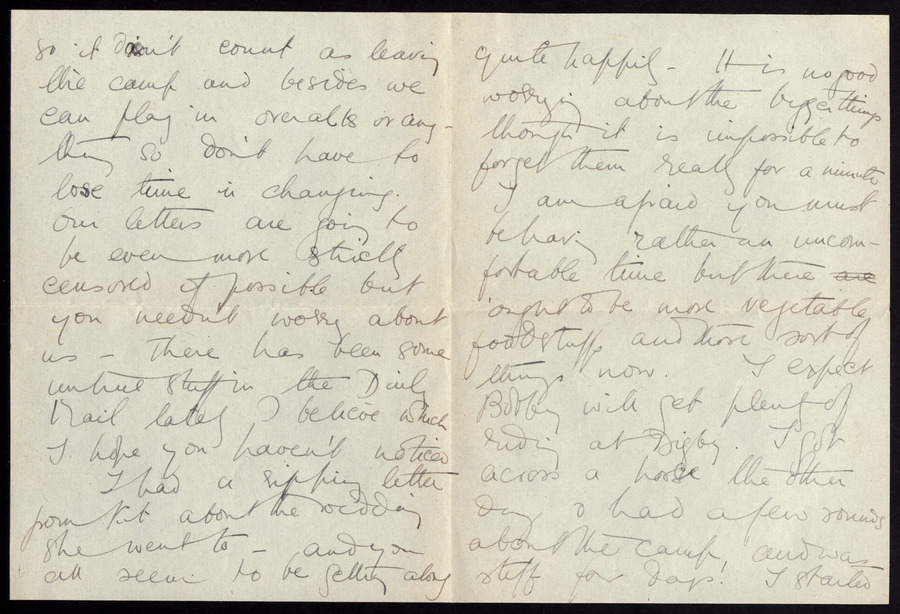 so it don't count as leaving
the camp and besides we
can play in overalls or any-
thing so don't have to
lose time in changing.
Our letters are going to
be even more strictly
censored if possible but
you needn't worry about
us - there has been some
untrue stuff in the Daily
Mail lately I believe which
I hope you haven't noticed
I had a ripping letter
from Kit about the wedding
she went to - and you
all seem to be getting along
quite happily - It is no good
worrying about the bigger things
though it is impossible to
forget them really for a minute
I am afraid you must
be having rather an uncom-
fortable time but there are
ought to be more vegetable
foodstuffs and those sort of
things now. I expect
Bobby will get plenty of
riding at Digby. I got
across a horse the other
day & had a few rounds
about the camp, and was
stiff for days. I started